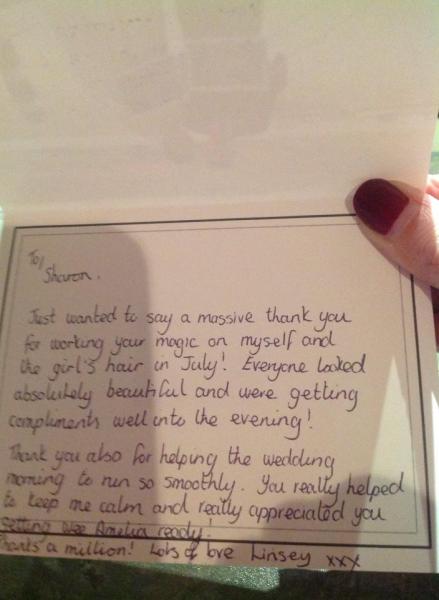 To/
Sharon.
Just wanted to say a massive thank you
for working your magic on myself and
the girl's hair in July! Everyone looked
absolutely beautiful and were getting
compliments well into the evening!
Thank you also for helping the wedding
morning to run so smoothly. You really helped
to keep me calm and really appreciated you
getting wee Amelia ready!
Thanks a million! Lots of love Linsey xxx